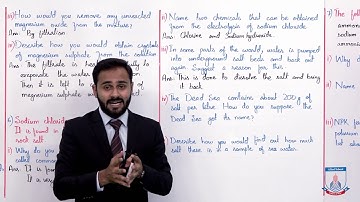 iii) How would you remove any unreacted
magnesium oxide from the mixture?
Ans. By filtration
iv) Describe how you would obtain crystals
of magnesium sulphate from the
Ans. The filtrate is
to evaporate the water
Then it is left to
of magnesium sulphate
6) Sodium chloride
It is found in
rock salt
i) Why do you
called common
Ans. It is found
It is
ii) Name two chemicals that can be obtained
from the electrolysis of sodium chloride
Ans: Chlorine and Sodium hydroxide.
iii) In some parts of the world, water is pumped
into underground salt beds and back out
again. Suggest a reason for this.
Ans: This is done to dissolve the salt and bring
it back.
iv) The Dead Sea contains about 200 g of
salt per litre. How do you suppose the
Dead Sea got its name?
Describe how you would find out how much
salt there is in a sample of sea water.
7)
ammonia
sodium
ammoniu
i) Why
Ans:
ii) Why d
Ans.
iii) NPK fe
potassium